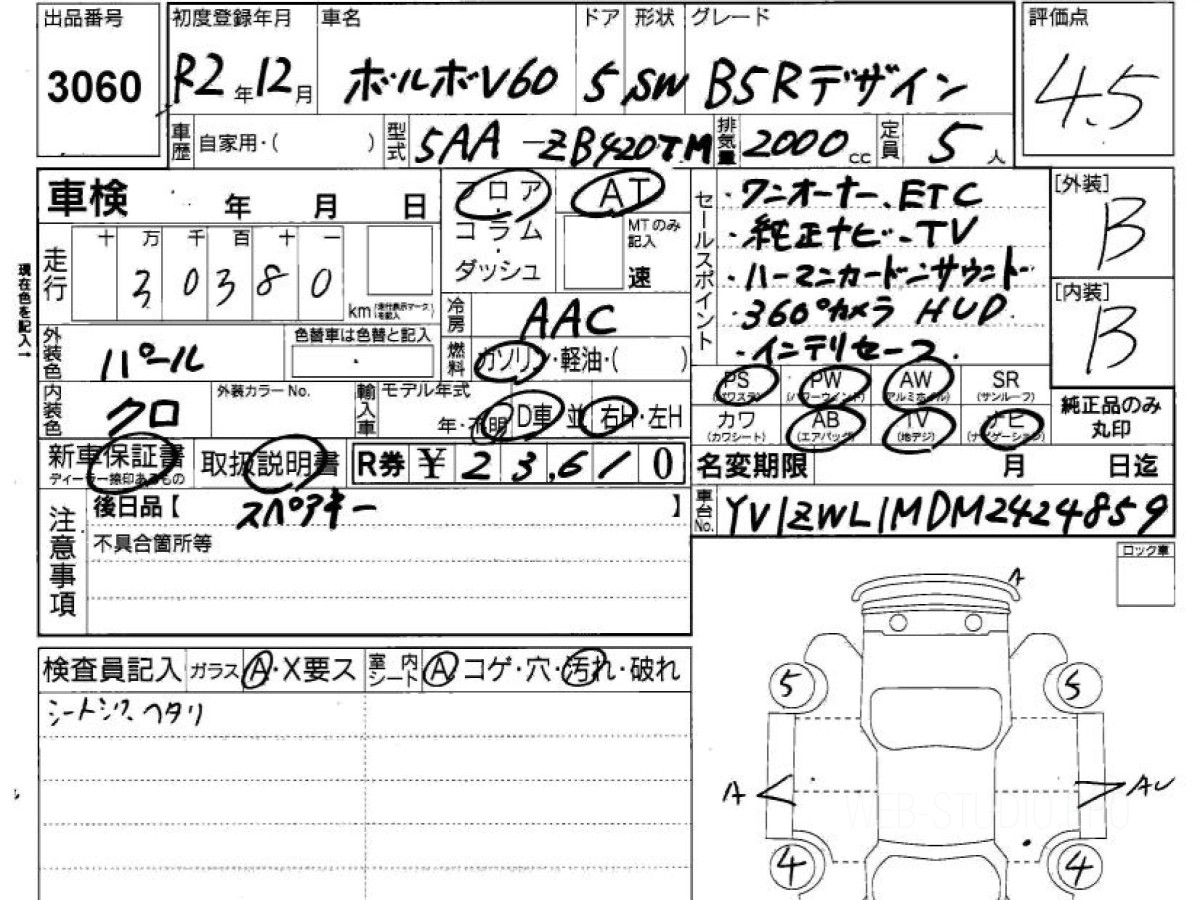 出品番号
3060
初度登録年月
R2年12月
車名
ボルボV60
ドア
5
形状
SW
グレード
B5 Rデザイン
評価点
4.5
車歴
自家用・( )
型式
5AA-ZB420TM
排気量
2000cc
定員
5人
車検 年 月 日
フロア
コラム
・
ダッシュ
AT
MTのみ記入
速
セールスポイント
・ワンオーナー、ETC
・純正ナビ-TV
・ハーマンカードンサウンド
・360°カメラ HUD
・インテリセーフ.
[外装]
B
[内装]
B
現在色を記入→
走行
十万千百十一
30380
km(走行表示マークを記入)
冷房
AAC
外装色
パール
色替車は色替と記入
燃料
ガソリン・軽油・( )
PS
(パワステ)
PW
(パワーウインド)
AW
(アルミホイル)
SR
(サンルーフ)
カワ
(カワシート)
AB
(エアバッグ)
TV
(地デジ)
ナビ
(ナビゲーション)
純正品のみ
丸印
内装色
クロ
外装カラーNo.
輸入車
モデル年式
年・不明
D車 並
右H・左H
新車保証書
ディーラー捺印あるもの
取扱説明書
R券 ¥23,610
名変期限 月 日迄
車台No.
YV1ZWL1MDM2424859
注意事項
後日品【 スペアキー 】
不具合箇所等
ロック車
検査員記入
ガラス
A・X要ス
室内シート
A・コゲ・穴・汚れ・破れ
シートシワ、ヘタリ
A
5
5
A
AU
WEB-STUDIO.PRO
4
4